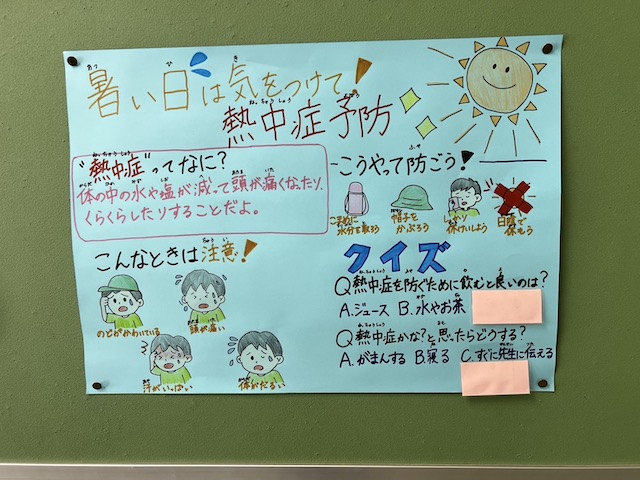 暑い日は気をつけて!
熱中症予防
"熱中症"ってなに?
体の中の水や塩が減って頭が痛くなったり、
くらくらしたりすることだよ。
こうやって防ごう!
こまめに
水分を取ろう
帽子を
かぶろう
しっかり
休けいしよう
日陰で
休もう
こんなときは注意!
のどがかわいている
頭が痛い
汗がいっぱい
体がだるい
クイズ
Q熱中症を防ぐために飲むと良いのは?
A.ジュース B.水やお茶
Q熱中症かな?と思ったらどうする?
A.がまんする B.寝る C.すぐに先生に伝える